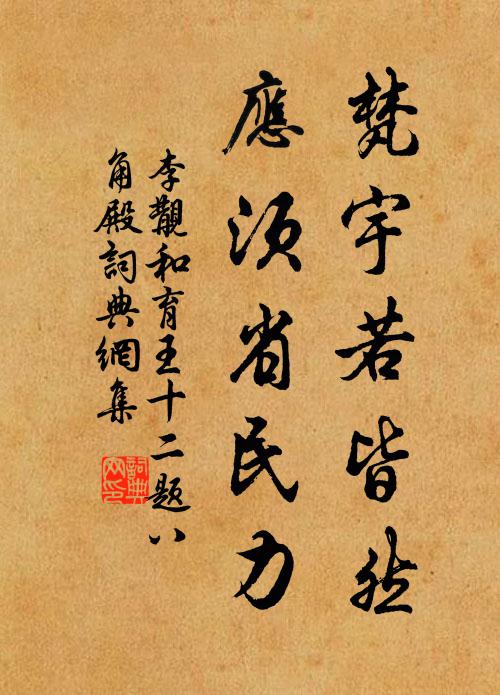 梵宇若皆然
應須省民力
李覯和育王十二題八
角殿詞典網集
詞典
网印